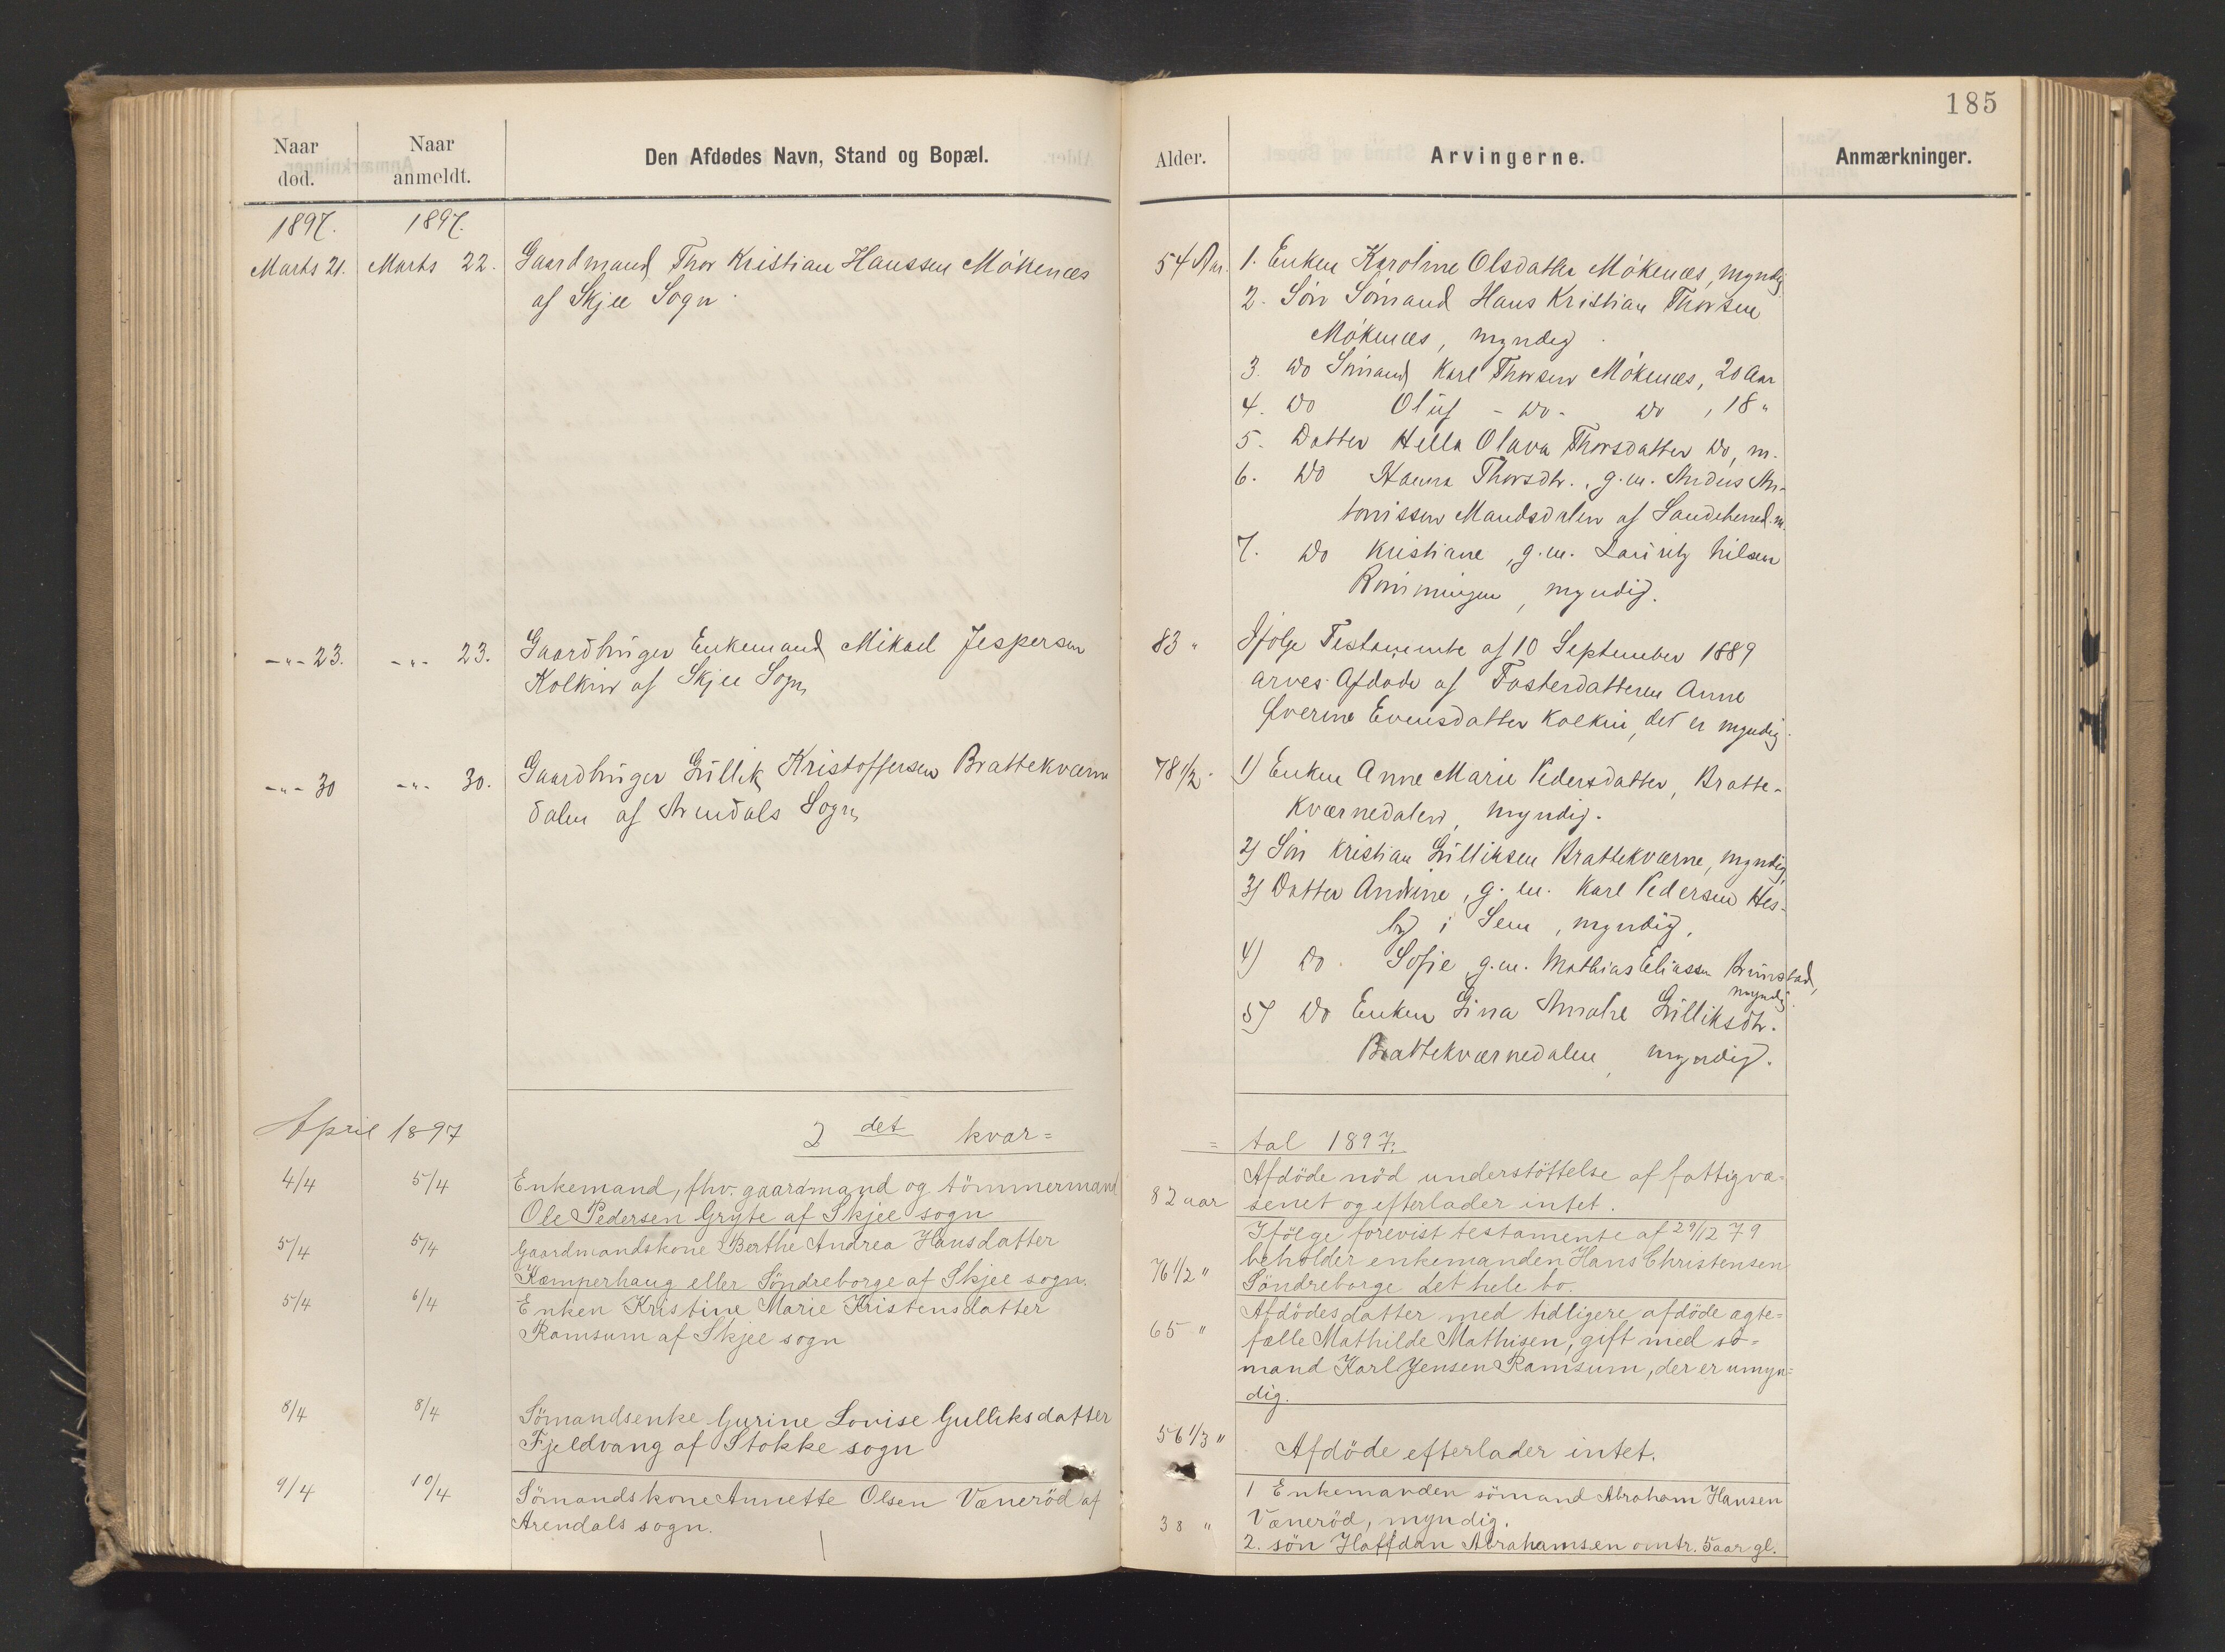 185
Naar død.
Naar anmeldt.
Den Afdødes Navn, Stand og Bopæl.
Alder.
Arvingerne.
Anmærkninger.
1897. 1897.
Marts 21. Marts 22. Gaardmand Thor Kristian Hanssen Mökenæs
af Skjee Sogn.
54 Aar. 1. Enken Karoline Olsdatter Mökenæs, myndig.
2. Sön Sömand Hans Kristian Thorsen
Mökenæs, myndig.
3. Do Sömand Karl Thorsen Mökenæs, 20 Aar
4. Do Oluf - Do - Do, 18 "
5. Datter Hella Olava Thorsdatter Do, m.
6. Do Hanna Thorsdtr., g. m. Anders An-
tonissen Mandsdalen af Sandeherred m.
7. Do Kristiane, g. m. Lauritz Nilsen
Rönningen, myndig.
-"- 23. -"- 23. Gaardbruger Enkemand Mikael Jespersen
Kolkin af Skjee Sogn
83 " Ifölge Testamente af 10 September 1889
arves Afdöde af Fosterdatteren Anne
Severine Evensdatter Kolkin, det er myndig.
-"- 30 -"- 30. Gaardbruger Gullik Kristoffersen Brattekværne
dalen af Arendals Sogn
78 1/2 " 1) Enken Anne Marie Pedersdatter, Bratte-
kværnedalen, myndig.
2) Sön Kristian Gulliksen Brattekværne, myndig,
3) Datter Andrine, g. m. Karl Pedersen Hes-
by i Sem, myndig.
4) Do. Sofie, g. m. Mathias Eliassen Brunstad,
myndig.
5) Do Enken Lina Amalie Gulliksdtr.
Brattekværnedalen, myndig.
April 1897 2 det kvar=
= tal 1897.
4/4 5/4 Enkemand, fhv. gaardmand og tömmermand
Ole Pedersen Gryte af Skjee sogn
82 aar Afdöde nöd understöttelse af fattigvæ=
senet og efterlader intet.
5/4 5/4 Gaardmandskone Berthe Andrea Hansdatter
Kæmperhaug eller Söndreborge af Skjee sogn.
76 1/2 " Ifölge forevist testamente af 29/12 79
beholder enkemanden Hans Christensen
Söndreborge det hele bo.
5/4 6/4 Enken Kristine Marie Kristensdatter
Ramsum af Skjee sogn
65 " Afdödes datter med tidligere afdöde ægte=
fælle Mathilde Mathisen, gift med sö=
mand Karl Jensen Ramsum, der er umyn=
dig.
8/4 8/4 Sömandsenke Gurine Lovise Gulliksdatter
Fjeldvang af Stokke sogn
56 1/3 " Afdöde efterlader intet.
9/4 10/4 Sömandskone Annette Olsen Væneröd af
Arendals sogn.
38 " 1 Enkemanden sömand Abraham Hansen
Væneröd, myndig.
2. sön Halfdan Abrahamsen omtr. 5 aar gl.